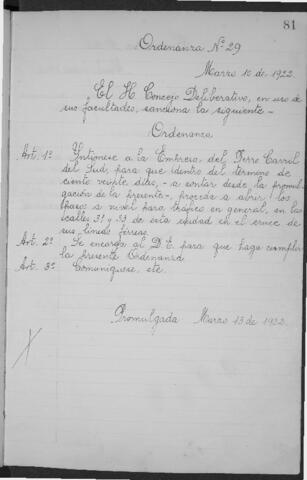 81
Ordenanza Nº 29
Marzo 10 de 1922.
El H Concejo Deliberativo, en uso de
sus facultades, sanciona la siguiente -
Ordenanza
Art. 1º Intímese a la Empresa del Ferro Carril
del Sud, para que dentro del término de
ciento veinte días, - a contar desde la promul-
gación de la presente -, proceda a abrir los
pasos a nivel para tráfico en general, en las
calles 31 y 33 de esta ciudad en el cruce de
sus líneas férreas.
Art. 2º Se encarga al D. E. para que haga cumplir
la presente Ordenanza
Art. 3º Comuníquese, etc.
Promulgada Marzo 13 de 1922.